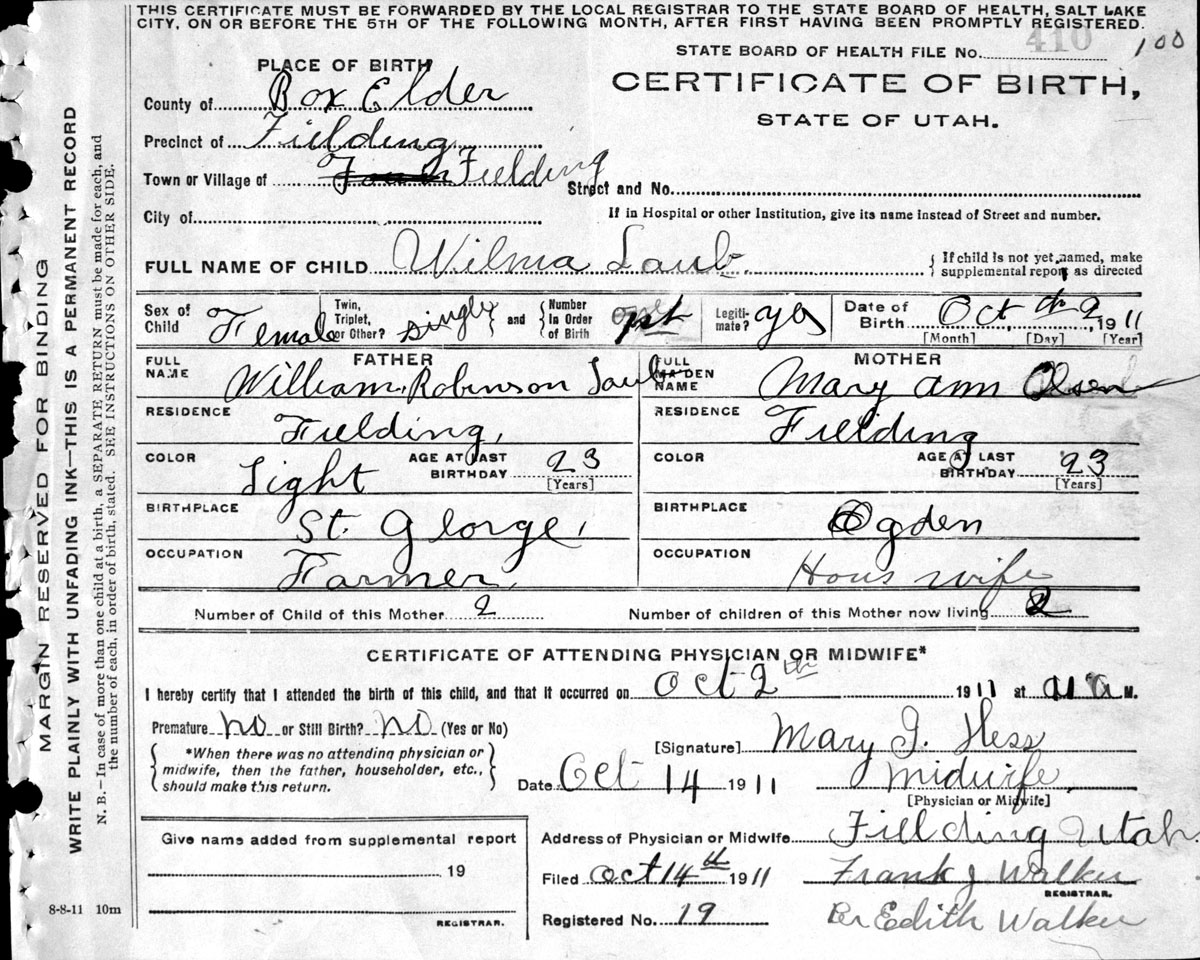 THIS CERTIFICATE MUST BE FORWARDED BY THE LOCAL REGISTRAR TO THE STATE BOARD OF HEALTH, SALT LAKE
CITY, ON OR BEFORE THE 5TH OF THE FOLLOWING MONTH, AFTER FIRST HAVING BEEN PROMPTLY REGISTERED.
STATE BOARD OF HEALTH FILE No. 410 100
CERTIFICATE OF BIRTH,
STATE OF UTAH.
PLACE OF BIRTH
County of Box Elder
Precinct of Fielding
Town or Village of Fielding
Street and No.
City of
If in Hospital or other Institution, give its name instead of Street and number.
FULL NAME OF CHILD Wilma Laub.
If child is not yet named, make
supplemental report as directed
Sex of Child Female
Twin, Triplet, or Other? single and
Number In Order of Birth
Legitimate? yes
Date of Birth Oct th 2, 1911
[Month] [Day] [Year]
FATHER
FULL NAME William Robinson Laub
RESIDENCE Fielding,
COLOR Light AGE AT LAST BIRTHDAY 23 [Years]
BIRTHPLACE St. George,
OCCUPATION Farmer,
MOTHER
FULL MAIDEN NAME Mary Ann Olsen
RESIDENCE Fielding
COLOR AGE AT LAST BIRTHDAY 23 [Years]
BIRTHPLACE Ogden
OCCUPATION Hous wife
Number of Child of this Mother 2 Number of children of this Mother now living 2
CERTIFICATE OF ATTENDING PHYSICIAN OR MIDWIFE*
I hereby certify that I attended the birth of this child, and that it occurred on Oct 2th 1911 at M.
Premature no or Still Birth? no (Yes or No)
*When there was no attending physician or
midwife, then the father, householder, etc.,
should make this return.
[Signature] Mary J. Hess
Date Oct 14 1911 Midwife,
[Physician or Midwife]
Give name added from supplemental report
19
REGISTRAR.
Address of Physician or Midwife Fielding Utah.
Filed Oct 14th 1911 Frank J Walker
REGISTRAR.
Registered No. 19 Edith Walker
8-8-11 10m
MARGIN RESERVED FOR BINDING
WRITE PLAINLY WITH UNFADING INK—THIS IS A PERMANENT RECORD
N. B.—In case of more than one child at a birth, a SEPARATE RETURN must be made for each, and
the number of each, in order of birth, stated. SEE INSTRUCTIONS ON OTHER SIDE.